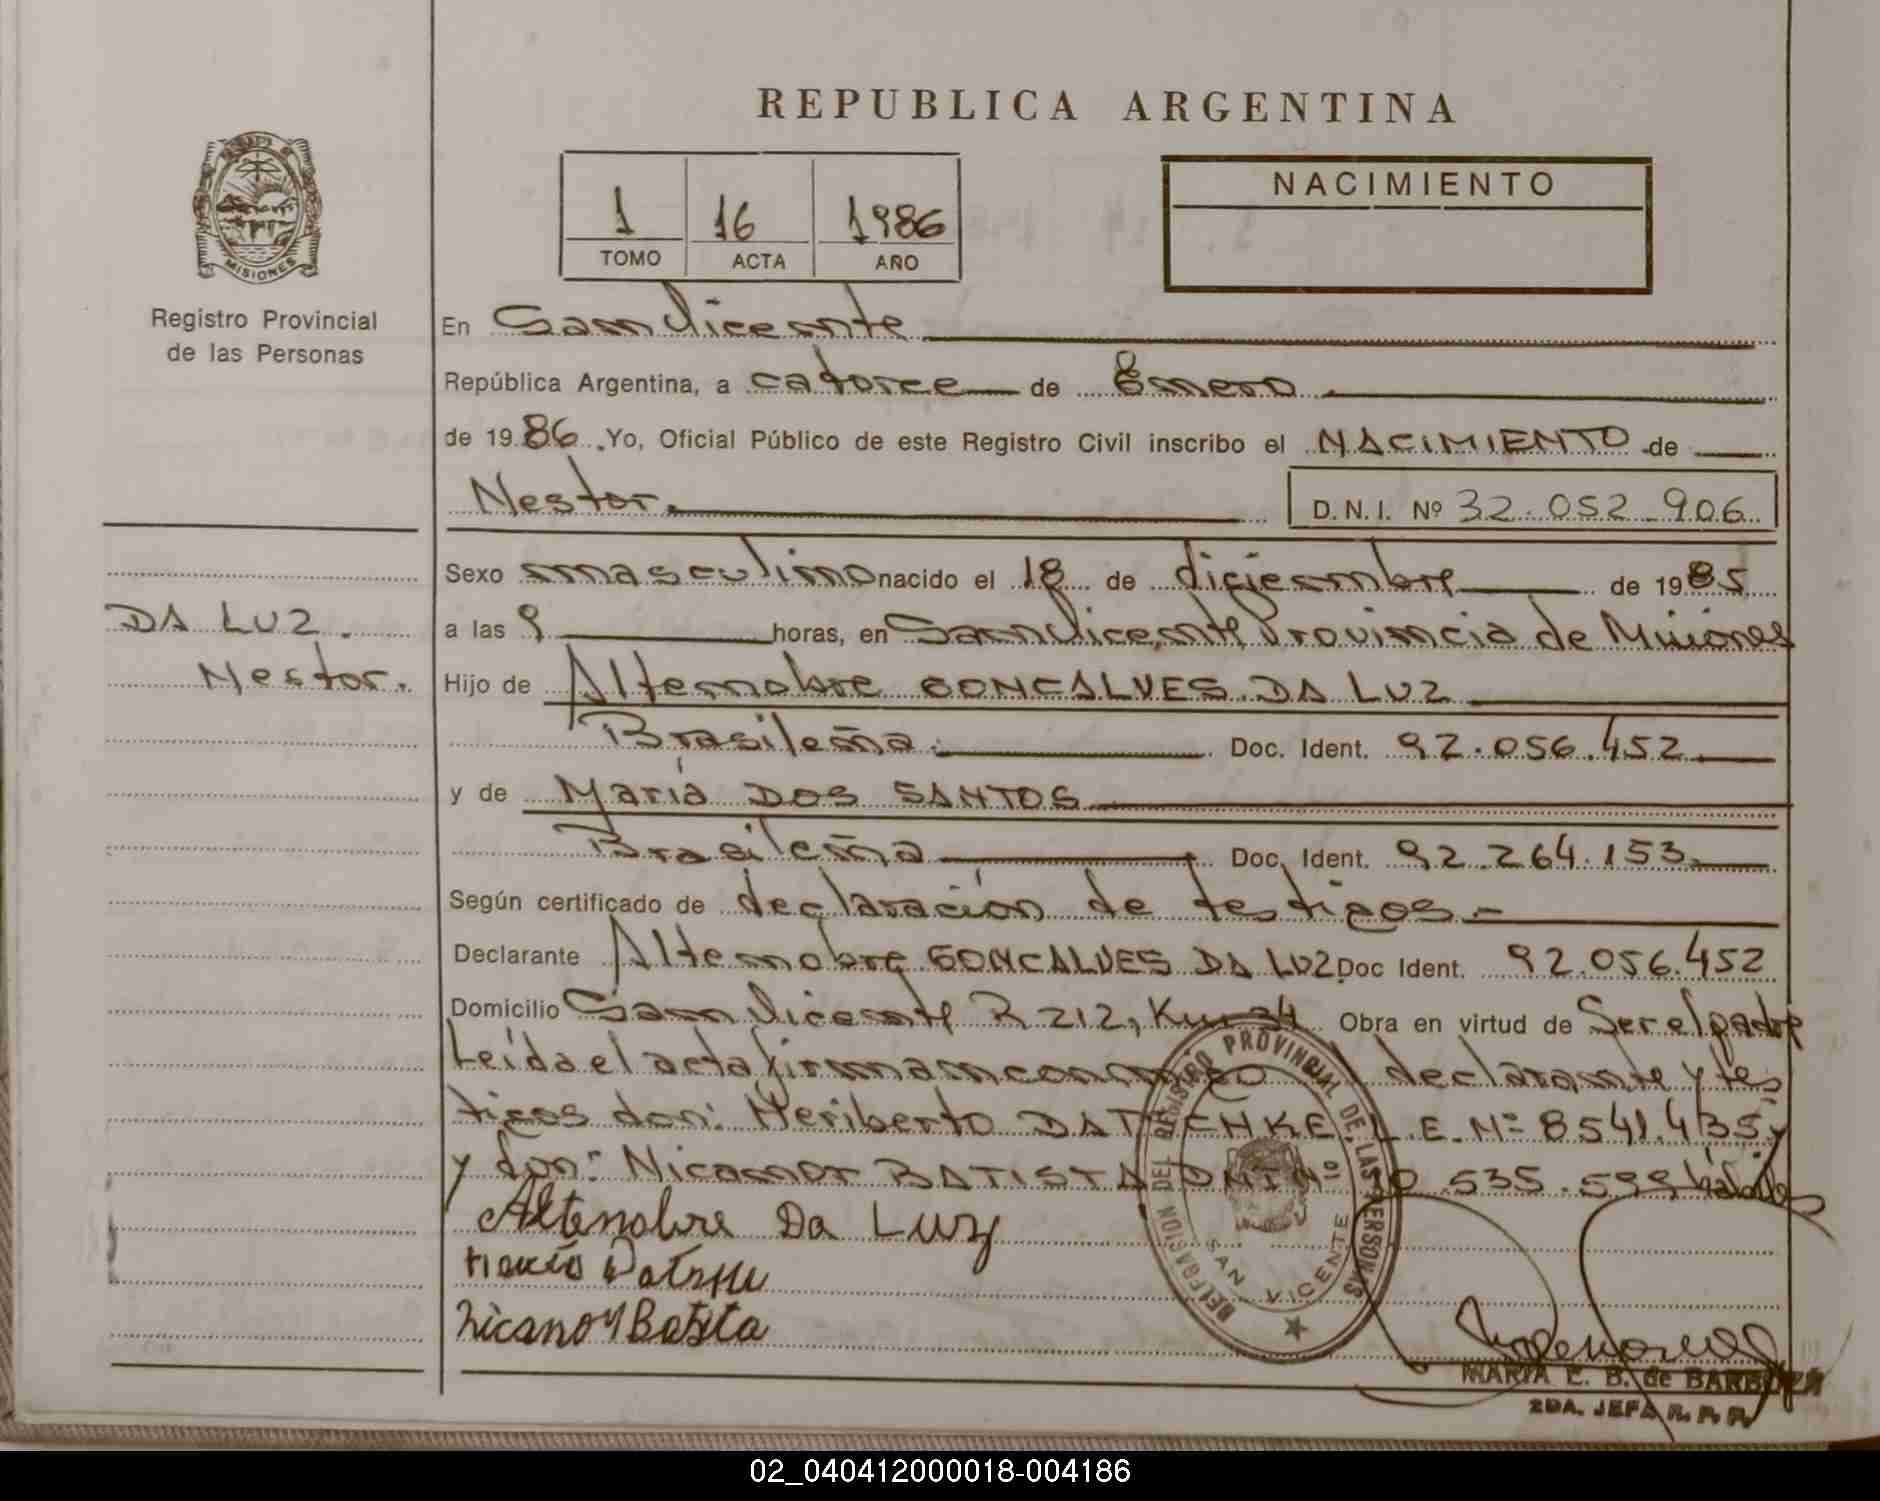 REPUBLICA ARGENTINA
MISIONES
Registro Provincial
de las Personas
1 16 1986
TOMO ACTA AÑO
NACIMIENTO
En San Vicente
República Argentina, a catorce de Enero
de 1986. Yo, Oficial Público de este Registro Civil inscribo el NACIMIENTO de
Nestor.
D.N.I. Nº 32.052.906
DA LUZ.
Nestor.
Sexo masculino nacido el 18 de diciembre de 1985
a las 9 horas, en San Vicente, Provincia de Misiones
Hijo de Altenobre GONCALVES DA LUZ
Brasileña. Doc. Ident. 92.056.452
y de María DOS SANTOS
Brasileña Doc. Ident. 92.264.153
Según certificado de declaración de testigos.-
Declarante Altenobre GONCALVES DA LUZ Doc Ident. 92.056.452
Domicilio San Vicente R 212, Km 34 Obra en virtud de Ser el padre
Leída el acta firman conmigo declarante y tes
tigos don: Heriberto L.E. Nº 8541.435 y
y don: Nicanor BATISTA DNI Nº 10.535.599
Altenobre Da Luz
Nicanor Batista
DELEGACION DEL REGISTRO PROVINCIAL DE LAS PERSONAS
SAN VICENTE
MARIA E. B. de BARBOZA
2DA. JEFA R. P. P.
02_040412000018-004186